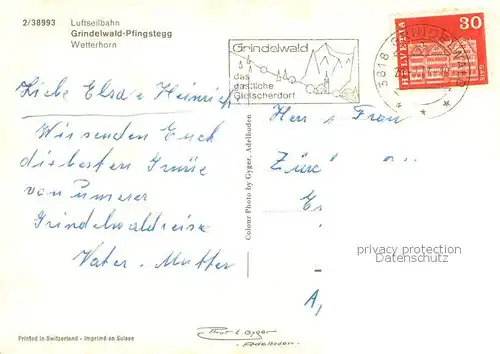 2/38993 Luftseilbahn
Grindelwald-Pfingstegg
Wetterhorn
Grindelwald
das
gastliche
Gletscherdorf
HELVETIA
30
3818 GRINDELWALD
Liebe Elsa + Heinrich
Wir senden Euch
die besten Grüsse
von unserer
Grindelwaldreise
Vater. Mutter
Herr + Frau
Zür
Er
A,
Colour Photo by Gyger, Adelboden
privacy protection
Printed in Switzerland - Imprimé en Suisse
Gyger
Adelboden